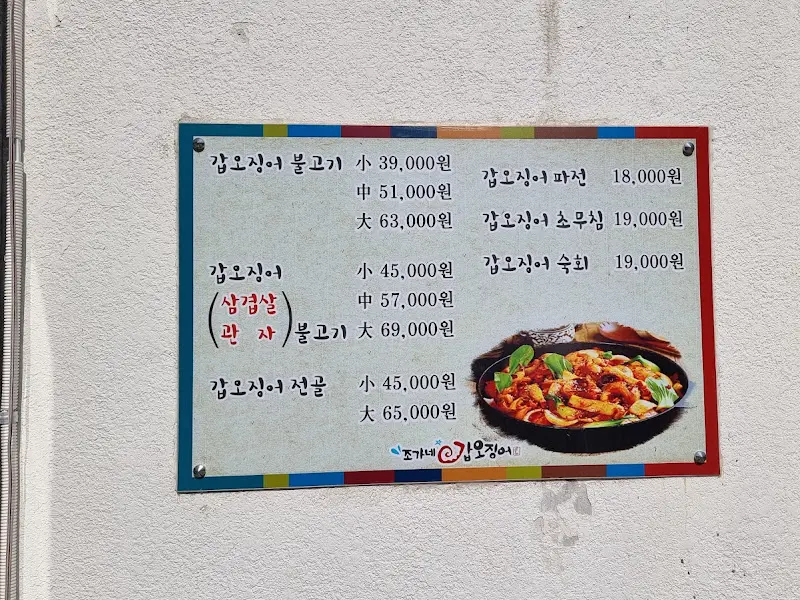 갑오징어 불고기 小 39,000원
中 51,000원
大 63,000원
갑오징어 小 45,000원
(삼겹살 中 57,000원
관 자) 불고기 大 69,000원
갑오징어 전골 小 45,000원
大 65,000원
갑오징어 파전 18,000원
갑오징어 초무침 19,000원
갑오징어 숙회 19,000원
조가네 갑오징어